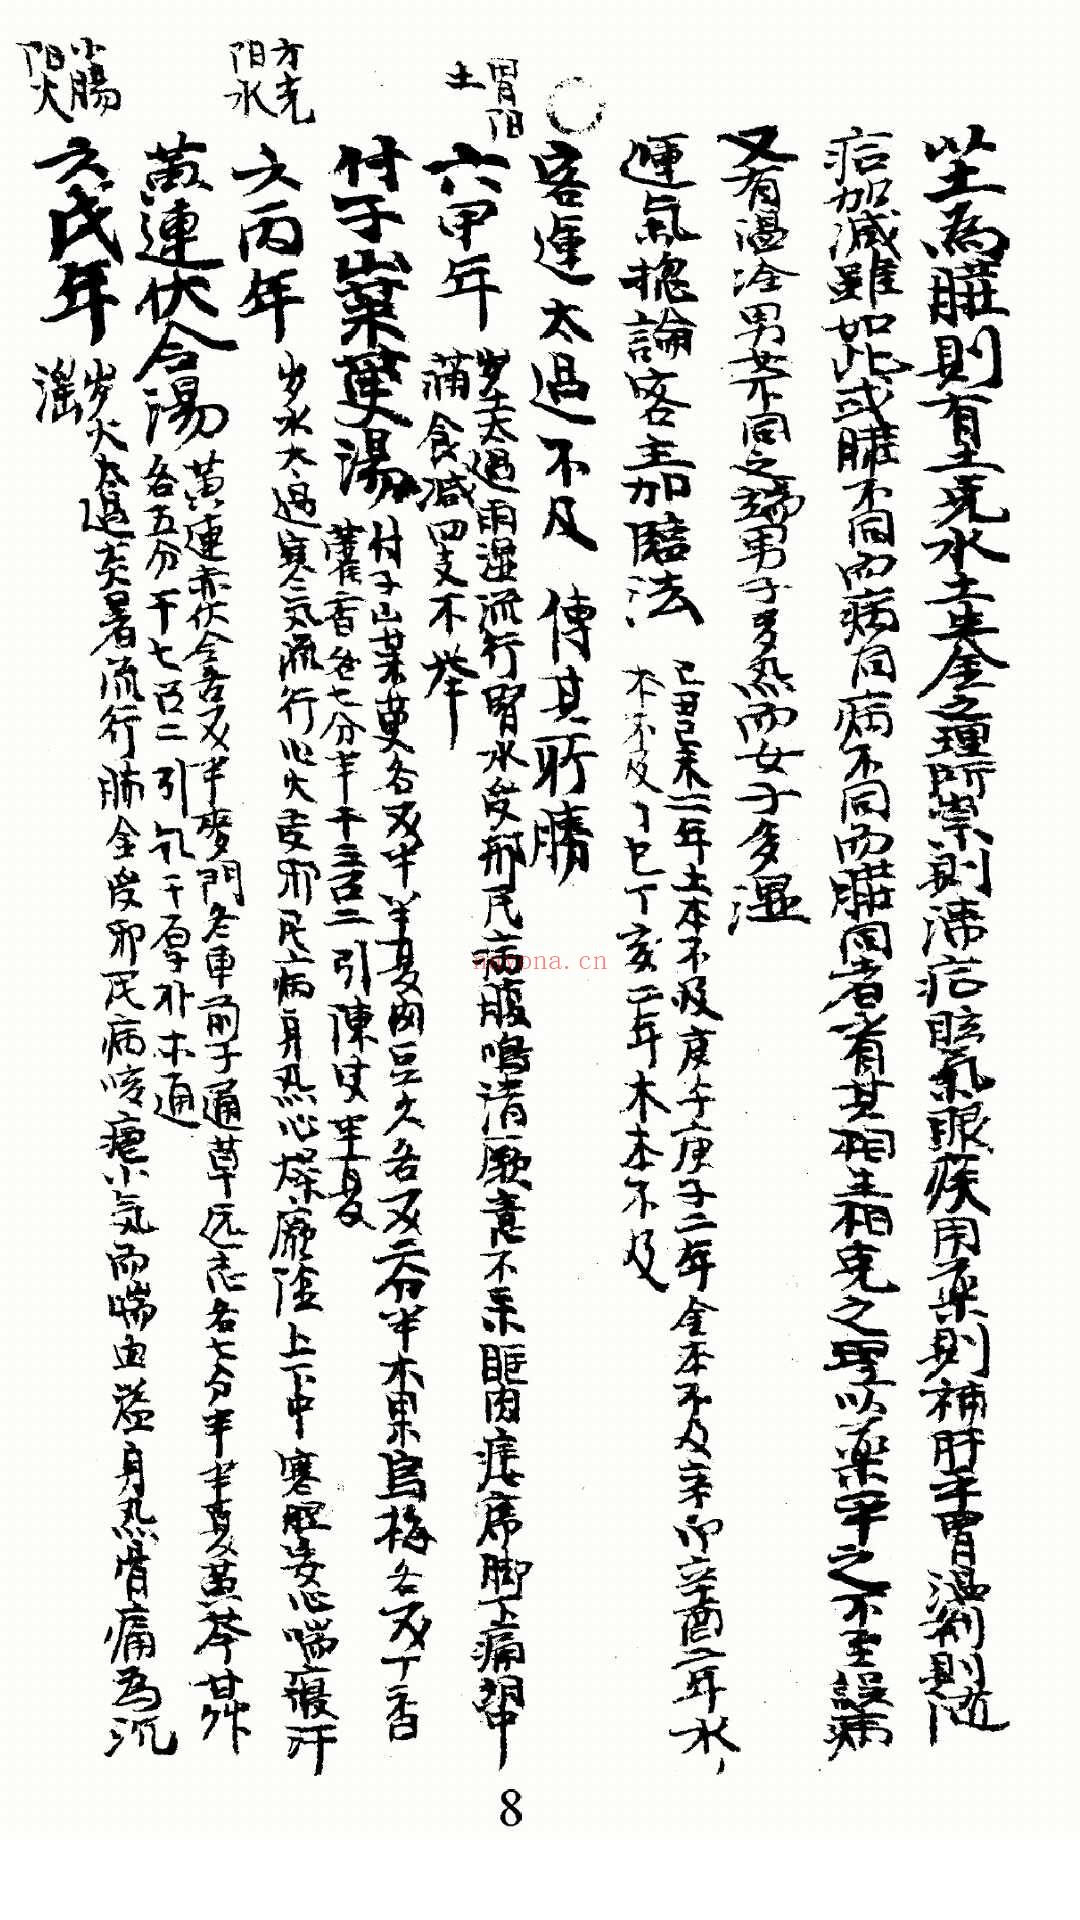 坐為脾則有土克水土生金之理所崇則沸症眩氣眼疾用藥則補肝平胃温剂則随
症加减雖如此或臟不同而病同病不同而臟同者水看其相生相克之理以藥平之不至誤病
又有温冷男女不同之端男子多熱而女子多濕
運氣摠論客主加臨法
己丑己未二年土本不及庚子庚子二年金本不及辛卯辛酉二年水
本不及丁巳丁亥二年木本不及
客運太過不及 傳其所勝
胃陽
土
六甲年
岁土太過雨湿流行腎水受邢民病腹鳴清厥意不楽眶肉痿席脚下痛
滿食减四支不举
付子山茱萸湯
付子山茱萸各又半半夏肉豆久各又二分半木果烏梅各又丁香
藿香各七分半干三召二引陳皮半夏
方光
阳水
六丙年
岁水太過寒气流行心火受邪民病身热心燥厥陰上下中寒腥妄心喘寢汗
黄連伏令湯
黄連赤伏令各又半麥門冬車前子通草远志各七分半半夏黄芩甘艸
各五分干七召二引干厚朴木通
小腸
阳火
六戊年
岁火太過炎暑流行肺金受邪民病咳瘧小气而喘血溢身热骨痛為沉
滛
8
nayona.cn